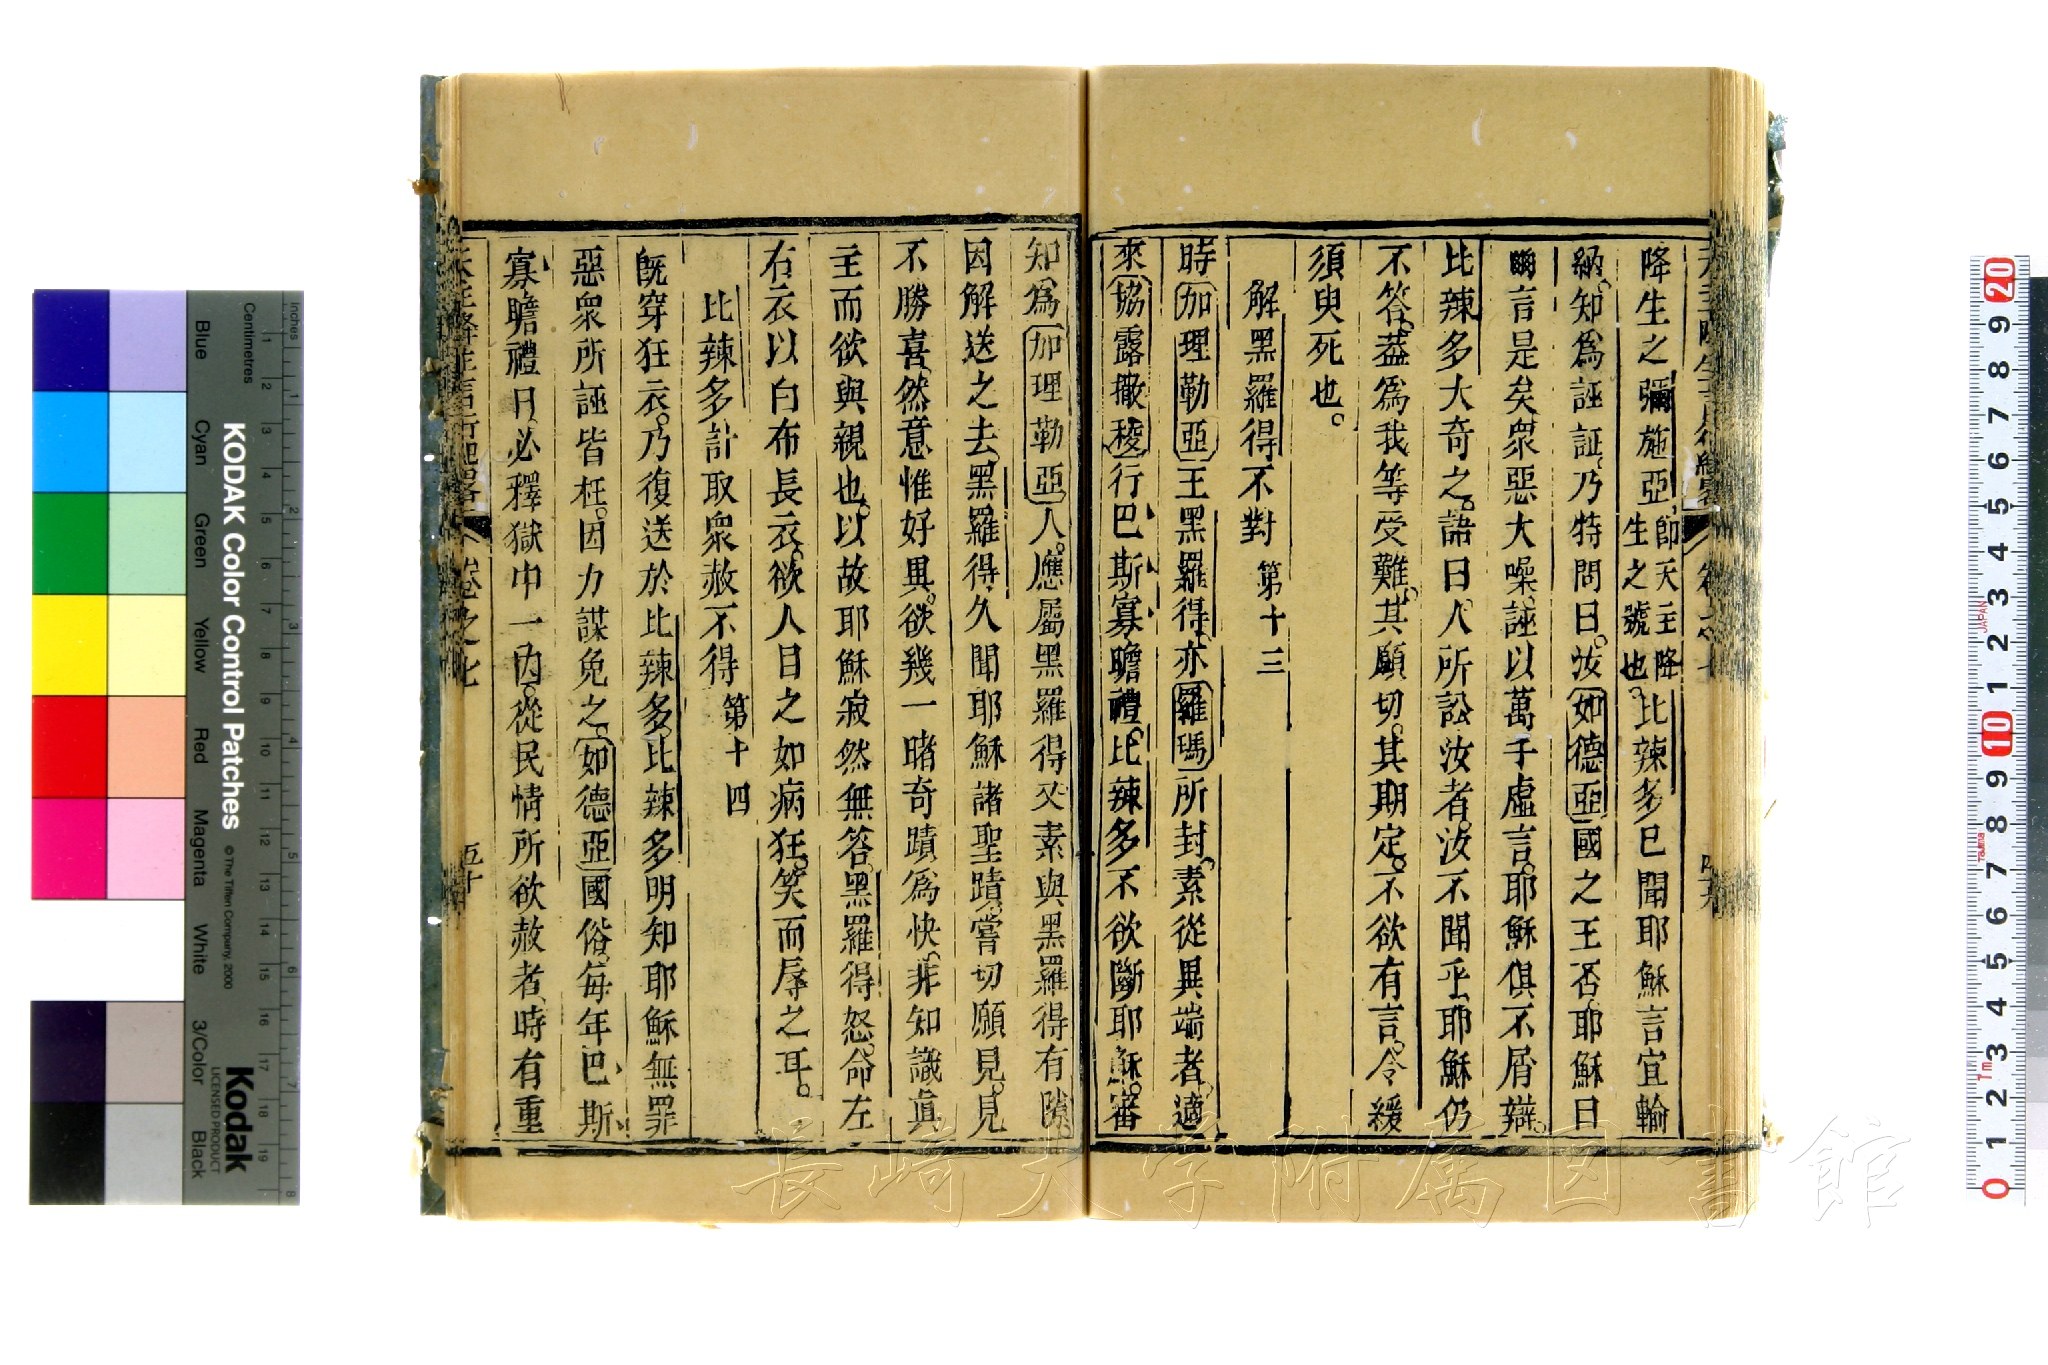 降生之彌施亞師天主降生之號也。比辣多巳聞耶穌言宜輸
納知爲誣証乃特問曰。汝如德亞國之王否耶穌曰
爾言是矣衆惡大噪誣以萬千虛言。耶穌俱不屑辯。
比辣多大奇之。語曰人所訟汝者汝不聞乎耶穌仍
不答。葢爲我等受難。其願切。其期定。不欲有言。令緩
須臾死也。
解黑羅得不對 第十三
時加理勒亞王黑羅得。亦羅瑪所封。素從異端者。適
來協露撒稜行巴斯寡瞻禮。比辣多不欲斷耶穌。審
知爲加理勒亞人。應屬黑羅得又素與黑羅得有隙。
因解送之去黑羅得久聞耶穌諸聖蹟嘗切願見。見
不勝喜然意惟好異。欲幾一睹奇蹟爲快。非知識眞
主而欲與親也。以故耶穌寂然無答。黑羅得怒。命左
右衣以白布長衣。欲人目之如病狂。笑而辱之耳。
比辣多計取衆赦不得 第十四
旣穿狂衣。乃復送於比辣多。比辣多明知耶穌無罪
惡衆所誣皆枉。因力謀免之。如德亞國俗每年巴斯
寡瞻禮日。必釋獄中一囚。從民情所欲赦者時有重
天主降生言行紀畧 卷之七 五十
長崎大学附属図書館
KODAK Color Control Patches
© The Tiffen Company, 2000
Kodak
LICENSED PRODUCT
Inches
Centimetres
Blue
Cyan
Green
Yellow
Red
Magenta
White
3/Color
Black
JAPAN
Tajima